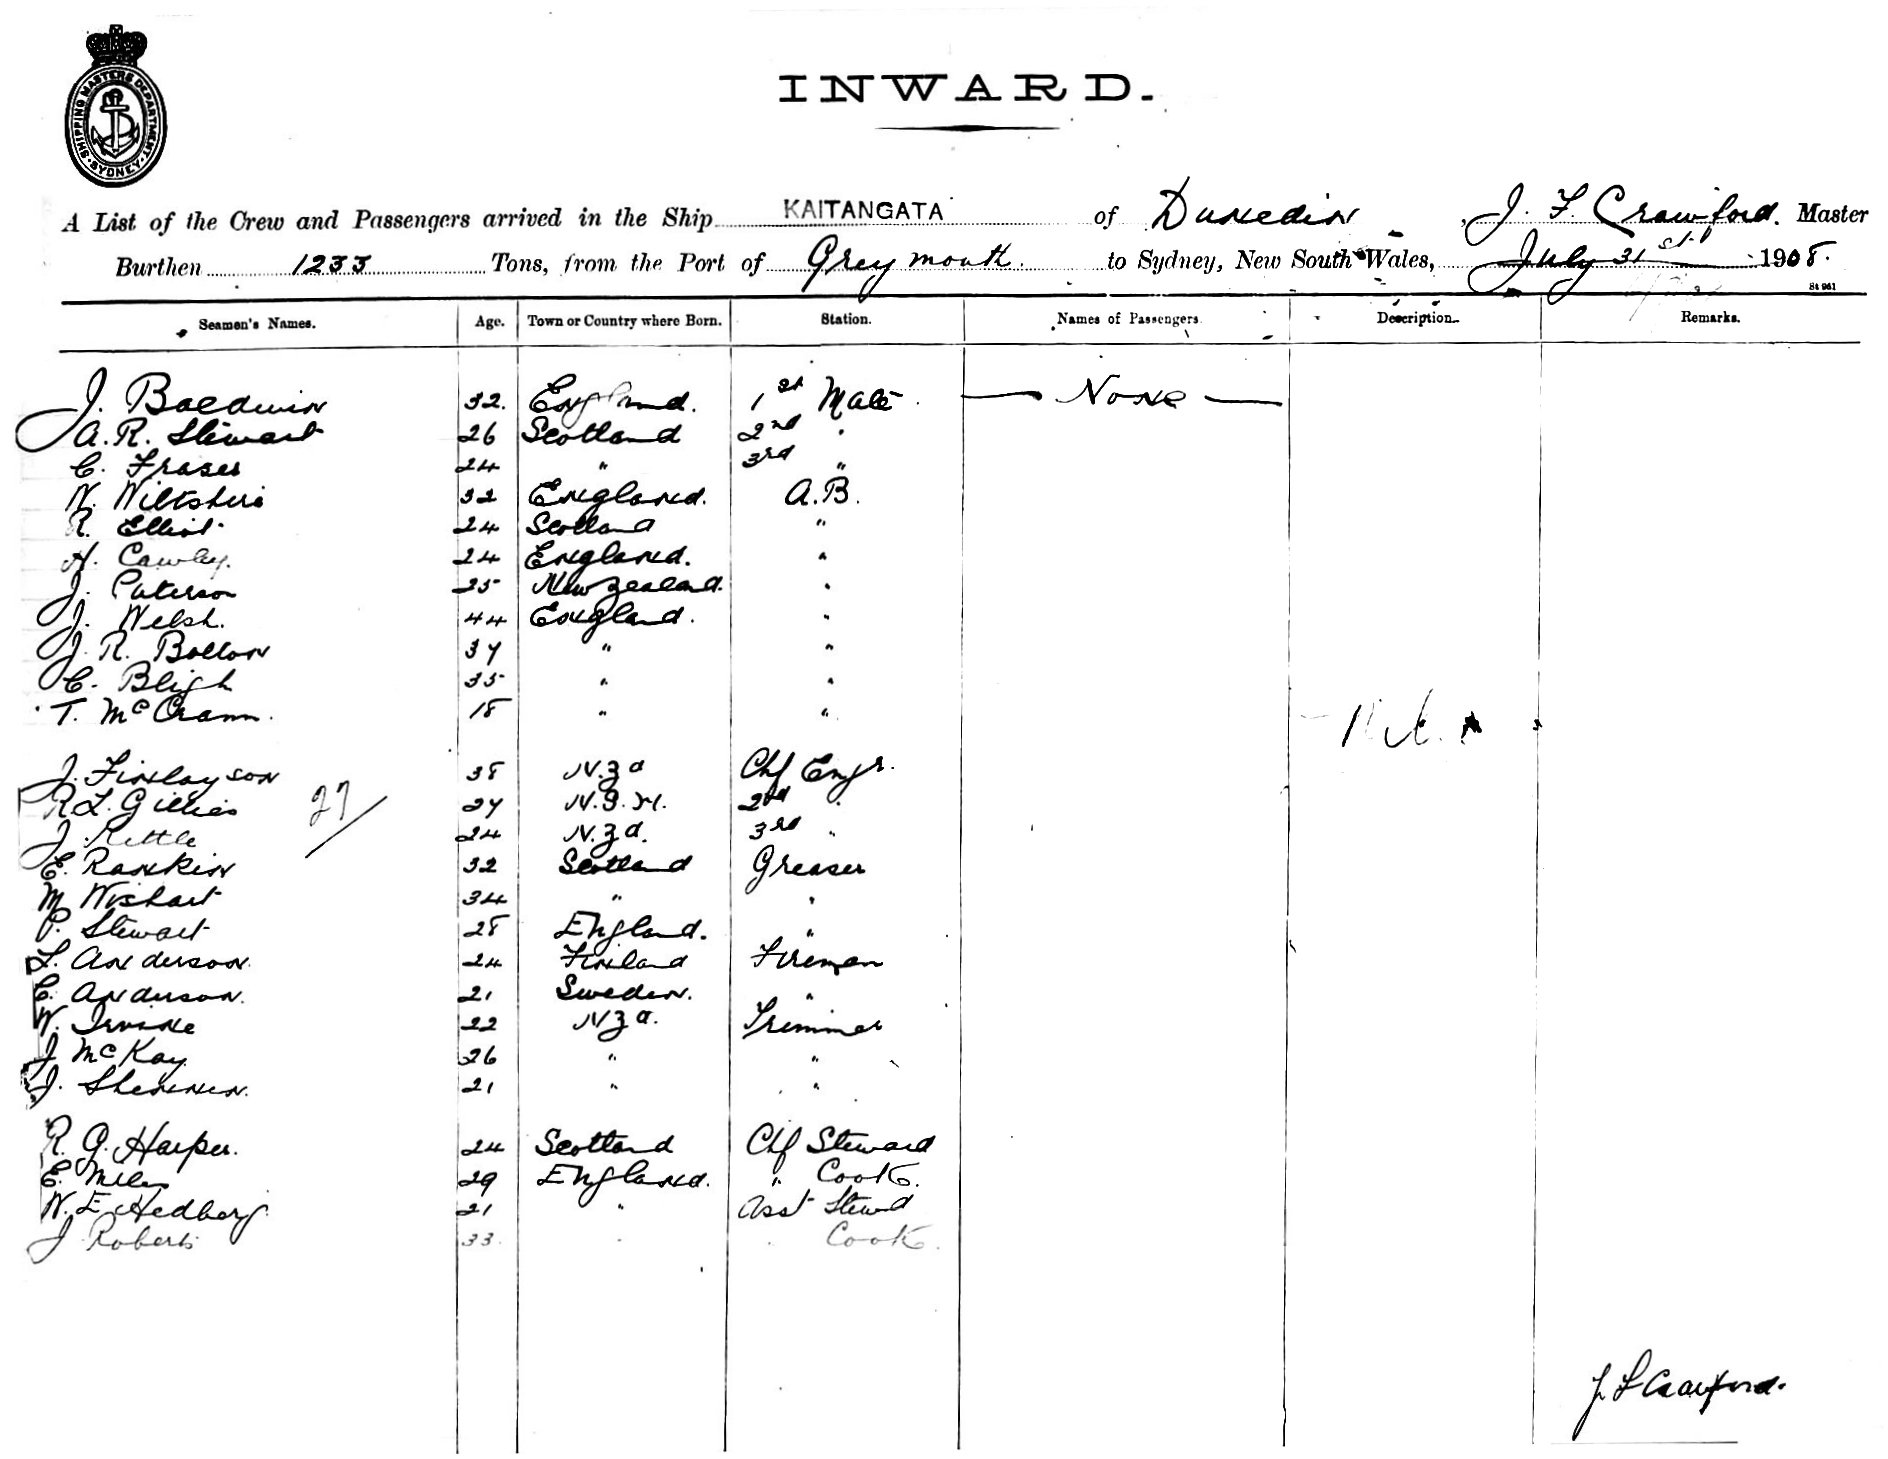 SHIPPING MASTERS DEPARTMENT. SYDNEY.
INWARD.
A List of the Crew and Passengers arrived in the Ship KAITANGATA of Dunedin, J. F. Crawford. Master
Burthen 1233 Tons, from the Port of Greymouth to Sydney, New South Wales, July 31st 1908.
St 961
Seamen's Names. Age. Town or Country where Born. Station. Names of Passengers. Description. Remarks.
J. Baldwin 32. England. 1st Mate — None —
A. R. Stewart 26 Scotland 2nd "
C. Fraser 24 " 3rd "
W. Wiltshire 32 England. A.B.
R. Elliot 24 Scotland "
H. Cawley. 24 England. "
J. Paterson 25 New Zealand. "
J. Welsh. 44 England. "
J. R. Bolton 37 " "
C. Bligh 35 " "
T. McCrann. 18 " "
J. Finlayson 38 N.Z d Chf Engr.
R L. Gillies 27 2nd "
27/
J. Kettle 24 N.Z d. 3rd "
E. Rankin 32 Scotland Greaser
M Wishart 34 " "
P. Stewart 28 England. "
L. Anderson. 24 Finland Fireman
C. Anderson. 21 Sweden. "
W. Irvine 22 N Z d. Trimmer
J McKay 26 " "
J. Shennen. 21 " "
R. G. Harper. 24 Scotland Chf Steward
E. Miles 29 England. " Cook.
W. E. Hedberg. 21 " Asst Stewd
J Roberts 33. " " Cook.
J F Crawford.